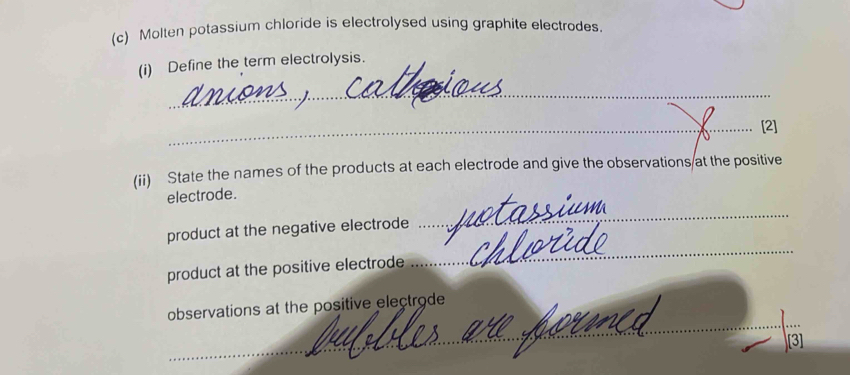 (c) Molten potassium chloride is electrolysed using graphite electrodes.
(i) Define the term electrolysis.
anions, cathious
[2]
(ii) State the names of the products at each electrode and give the observations at the positive
electrode.
product at the negative electrode potassium
product at the positive electrode chloride
observations at the positive electrode
bubbles are formed
[3]